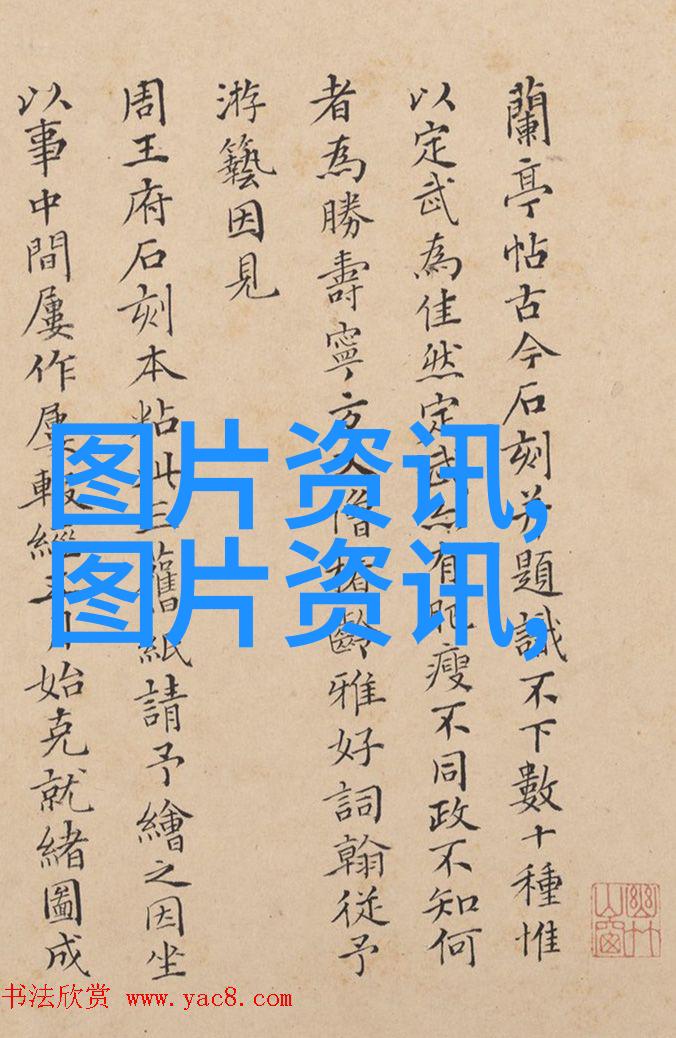 蘭亭帖古今石刻并題識不下數十種惟
以定武為佳然定武有肥瘦不同政不知何
者為勝壽寧方僧椿齡雅好詞翰從予
游藝因見
周王府石刻本粘此三舊紙請予繪之因坐
以事中間屢作屢輟經始克就緒圖成
图片资讯,
图片资讯,
书法欣赏 www.yac8.com